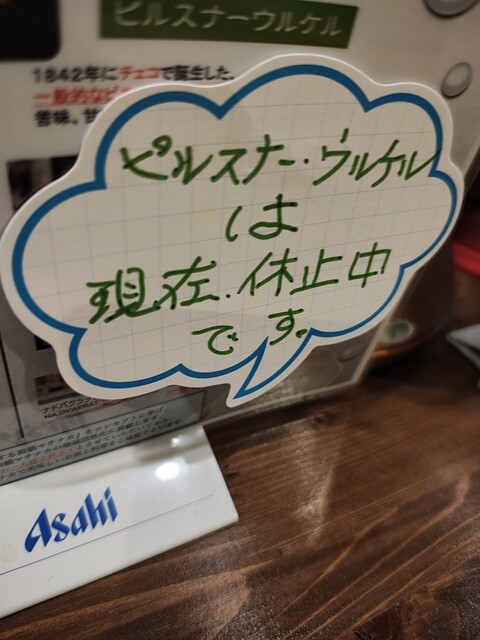 ピルスナーウルケル
1842年にチェコで誕生した。
一般的なピ
苦味。甘
ピルスナー・ウルケル
は
現在.休止中
です。
ナドバクラ
Asahi